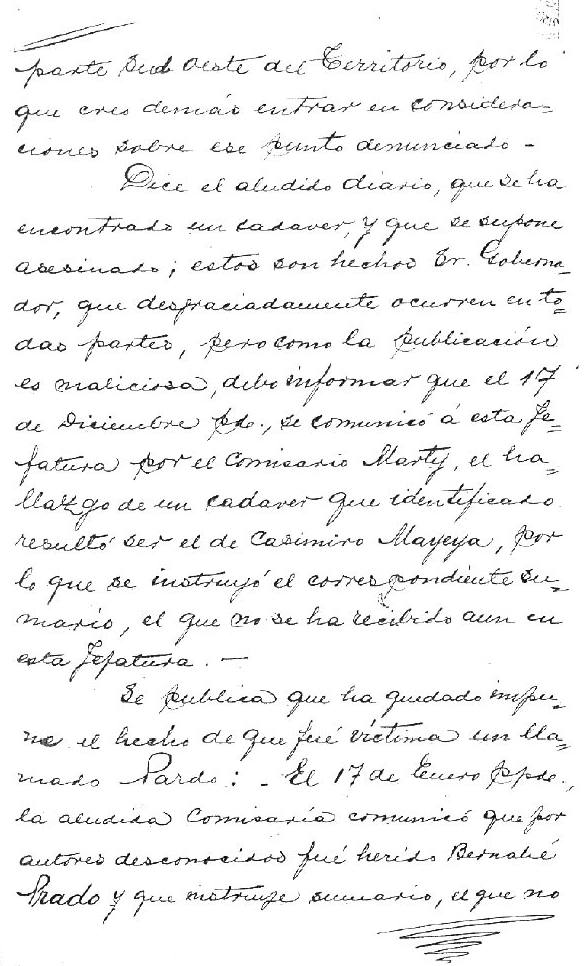 parte Sud Oeste del Territorio, por lo
que creo demás entrar en considera-
ciones sobre ese punto denunciado -
Dice el aludido diario, que se ha
encontrado un cadaver, y que se supone
asesinado; estos son hechos Sr. Goberna-
dor, que desgraciadamente ocurren en to-
das partes, pero como la publicación
es maliciosa, debo informar que el 17
de Diciembre pdo., se comunicó á esta Je-
fatura por el Comisario Marty, el ha-
llazgo de un cadaver que identificado
resultó ser el de Casimiro Mayeya, por
lo que se instruyó el correspondiente su-
mario, el que no se ha recibido aun en
esta Jefatura. -
Se publica que ha quedado impu-
ne el hecho de que fué víctima un lla-
mado Pardo: - El 17 de Enero ppdo.,
la aludida Comisaría comunicó que por
autores desconocidos fué herido Bernabé
Prado y que instruye sumario, el que no